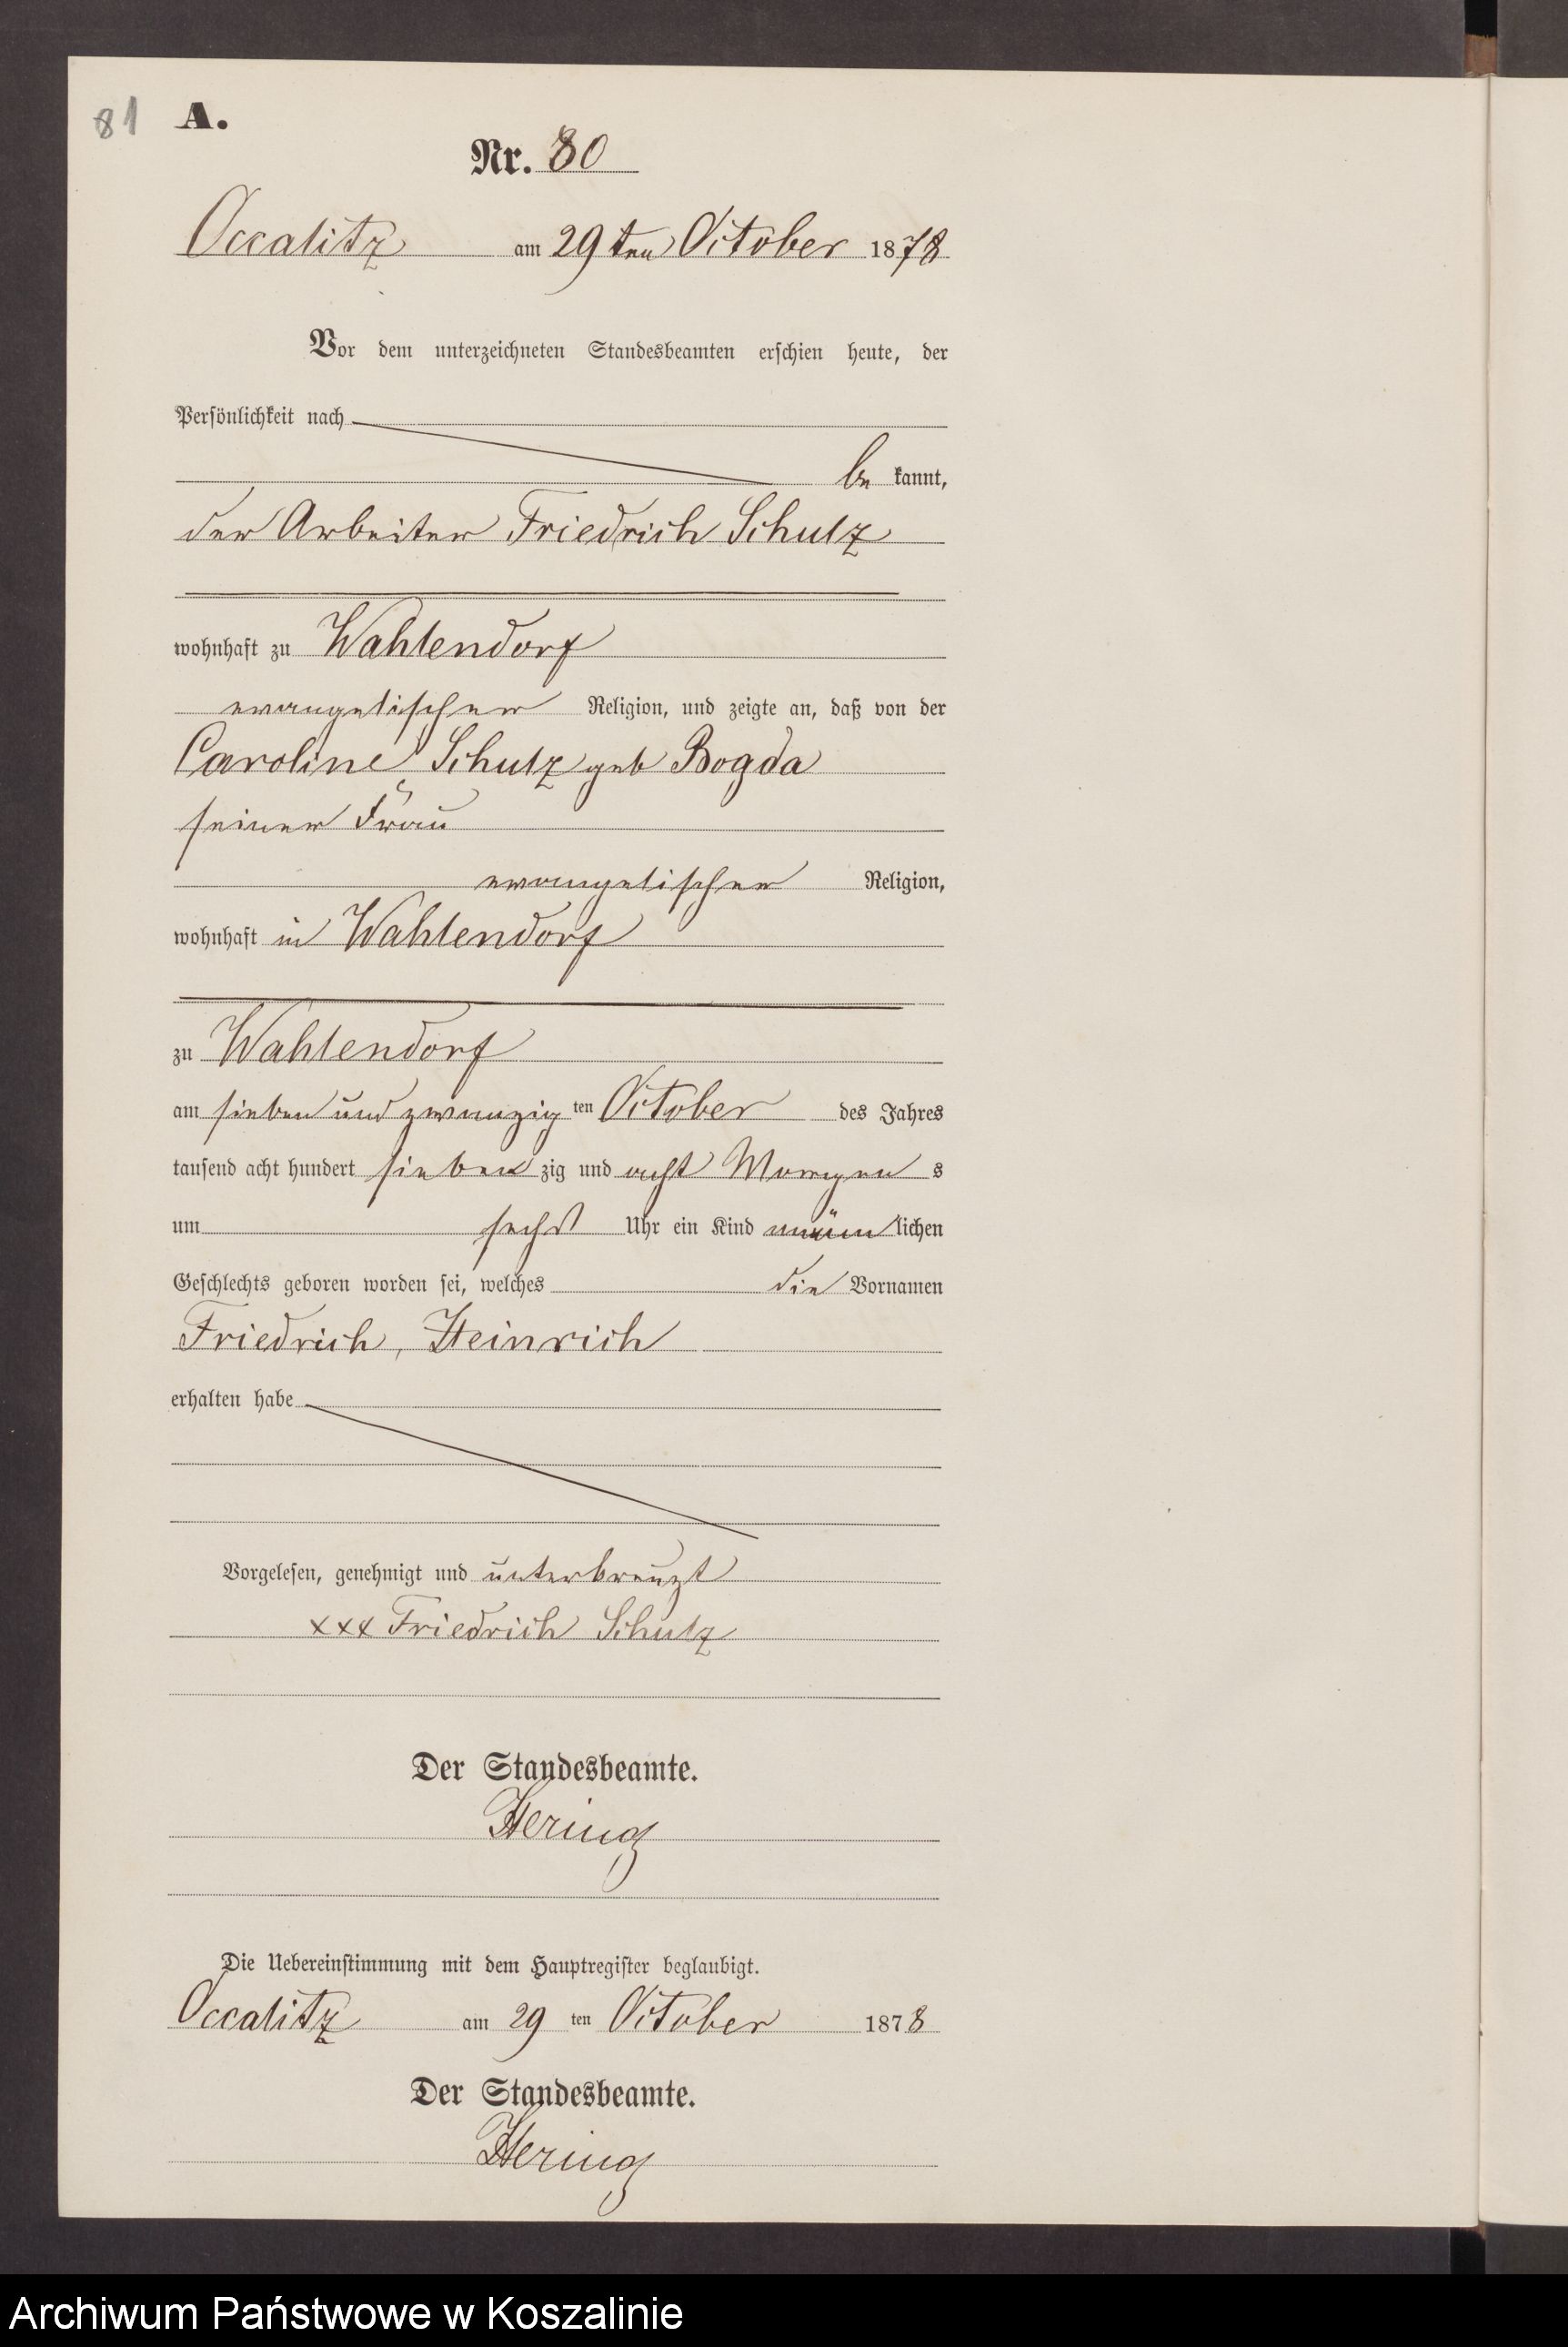 81 A.
Nr. 80
Occalitz am 29ten October 1878
Vor dem unterzeichneten Standesbeamten erschien heute, der
Persönlichkeit nach
be kannt,
der Arbeiter Friedrich Schulz
wohnhaft zu Wahlendorf
evangelischer Religion, und zeigte an, daß von der
Caroline Schulz geb Bogda
seiner Frau
evangelischer Religion,
wohnhaft in Wahlendorf
zu Wahlendorf
am sieben und zwanzig ten October des Jahres
tausend acht hundert sieben zig und acht Morgen s
um sechs Uhr ein Kind männ lichen
Geschlechts geboren worden sei, welches die Vornamen
Friedrich, Heinrich
erhalten habe
Vorgelesen, genehmigt und unterkreuzt
xxx Friedrich Schulz
Der Standesbeamte.
Hering
Die Uebereinstimmung mit dem Hauptregister beglaubigt.
Occalitz am 29 ten October 1878
Der Standesbeamte.
Hering
Archiwum Państwowe w Koszalinie